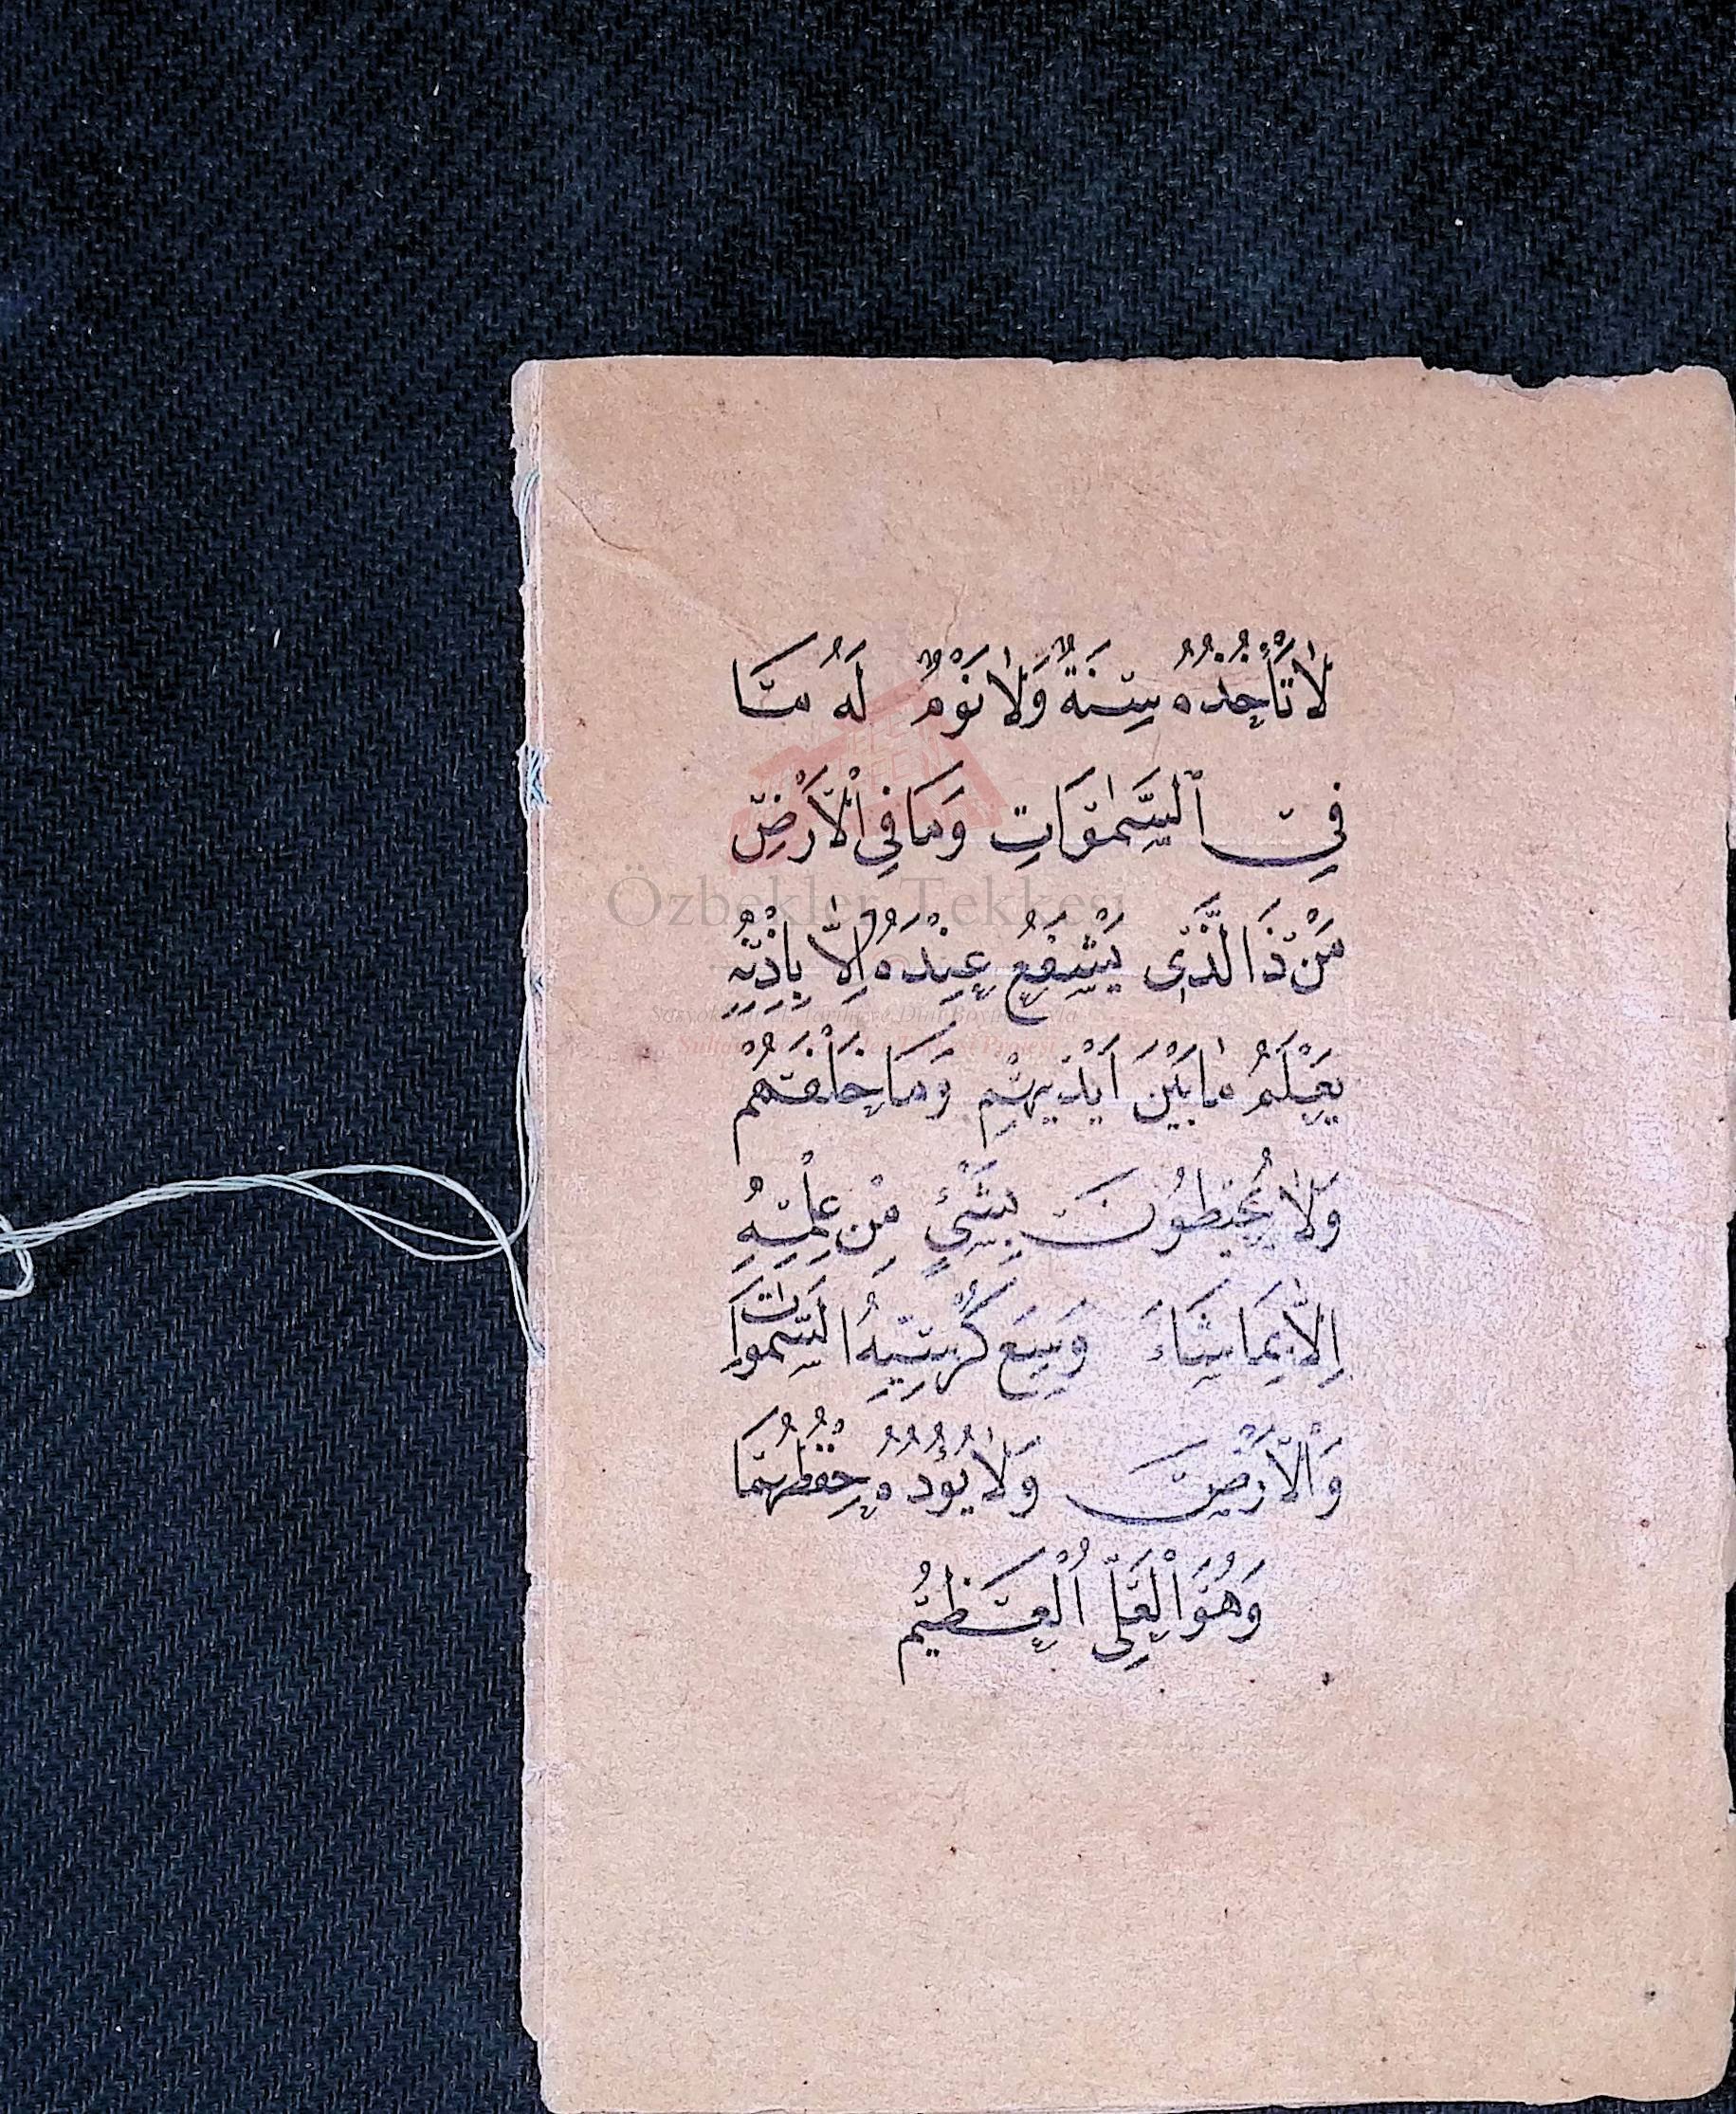 لَا تَأْخُذُهُ سِنَةٌ وَلَا نَوْمٌ لَهُ مَا
فِي السَّمٰوَاتِ وَمَا فِي الْاَرْضِ
مَنْ ذَا الَّذِي يَشْفَعُ عِنْدَهُ اِلَّا بِاِذْنِهِ
يَعْلَمُ مَا بَيْنَ اَيْدِيهِمْ وَمَا خَلْفَهُمْ
وَلَا يُحِيطُونَ بِشَيْءٍ مِنْ عِلْمِهِ
اِلَّا بِمَا شَاءَ وَسِعَ كُرْسِيُّهُ السَّمٰوَاتِ
وَالْاَرْضَ وَلَا يَؤُدُهُ حِفْظُهُمَا
وَهُوَ الْعَلِيُّ الْعَظِيمُ
Özbekler Tekkesi